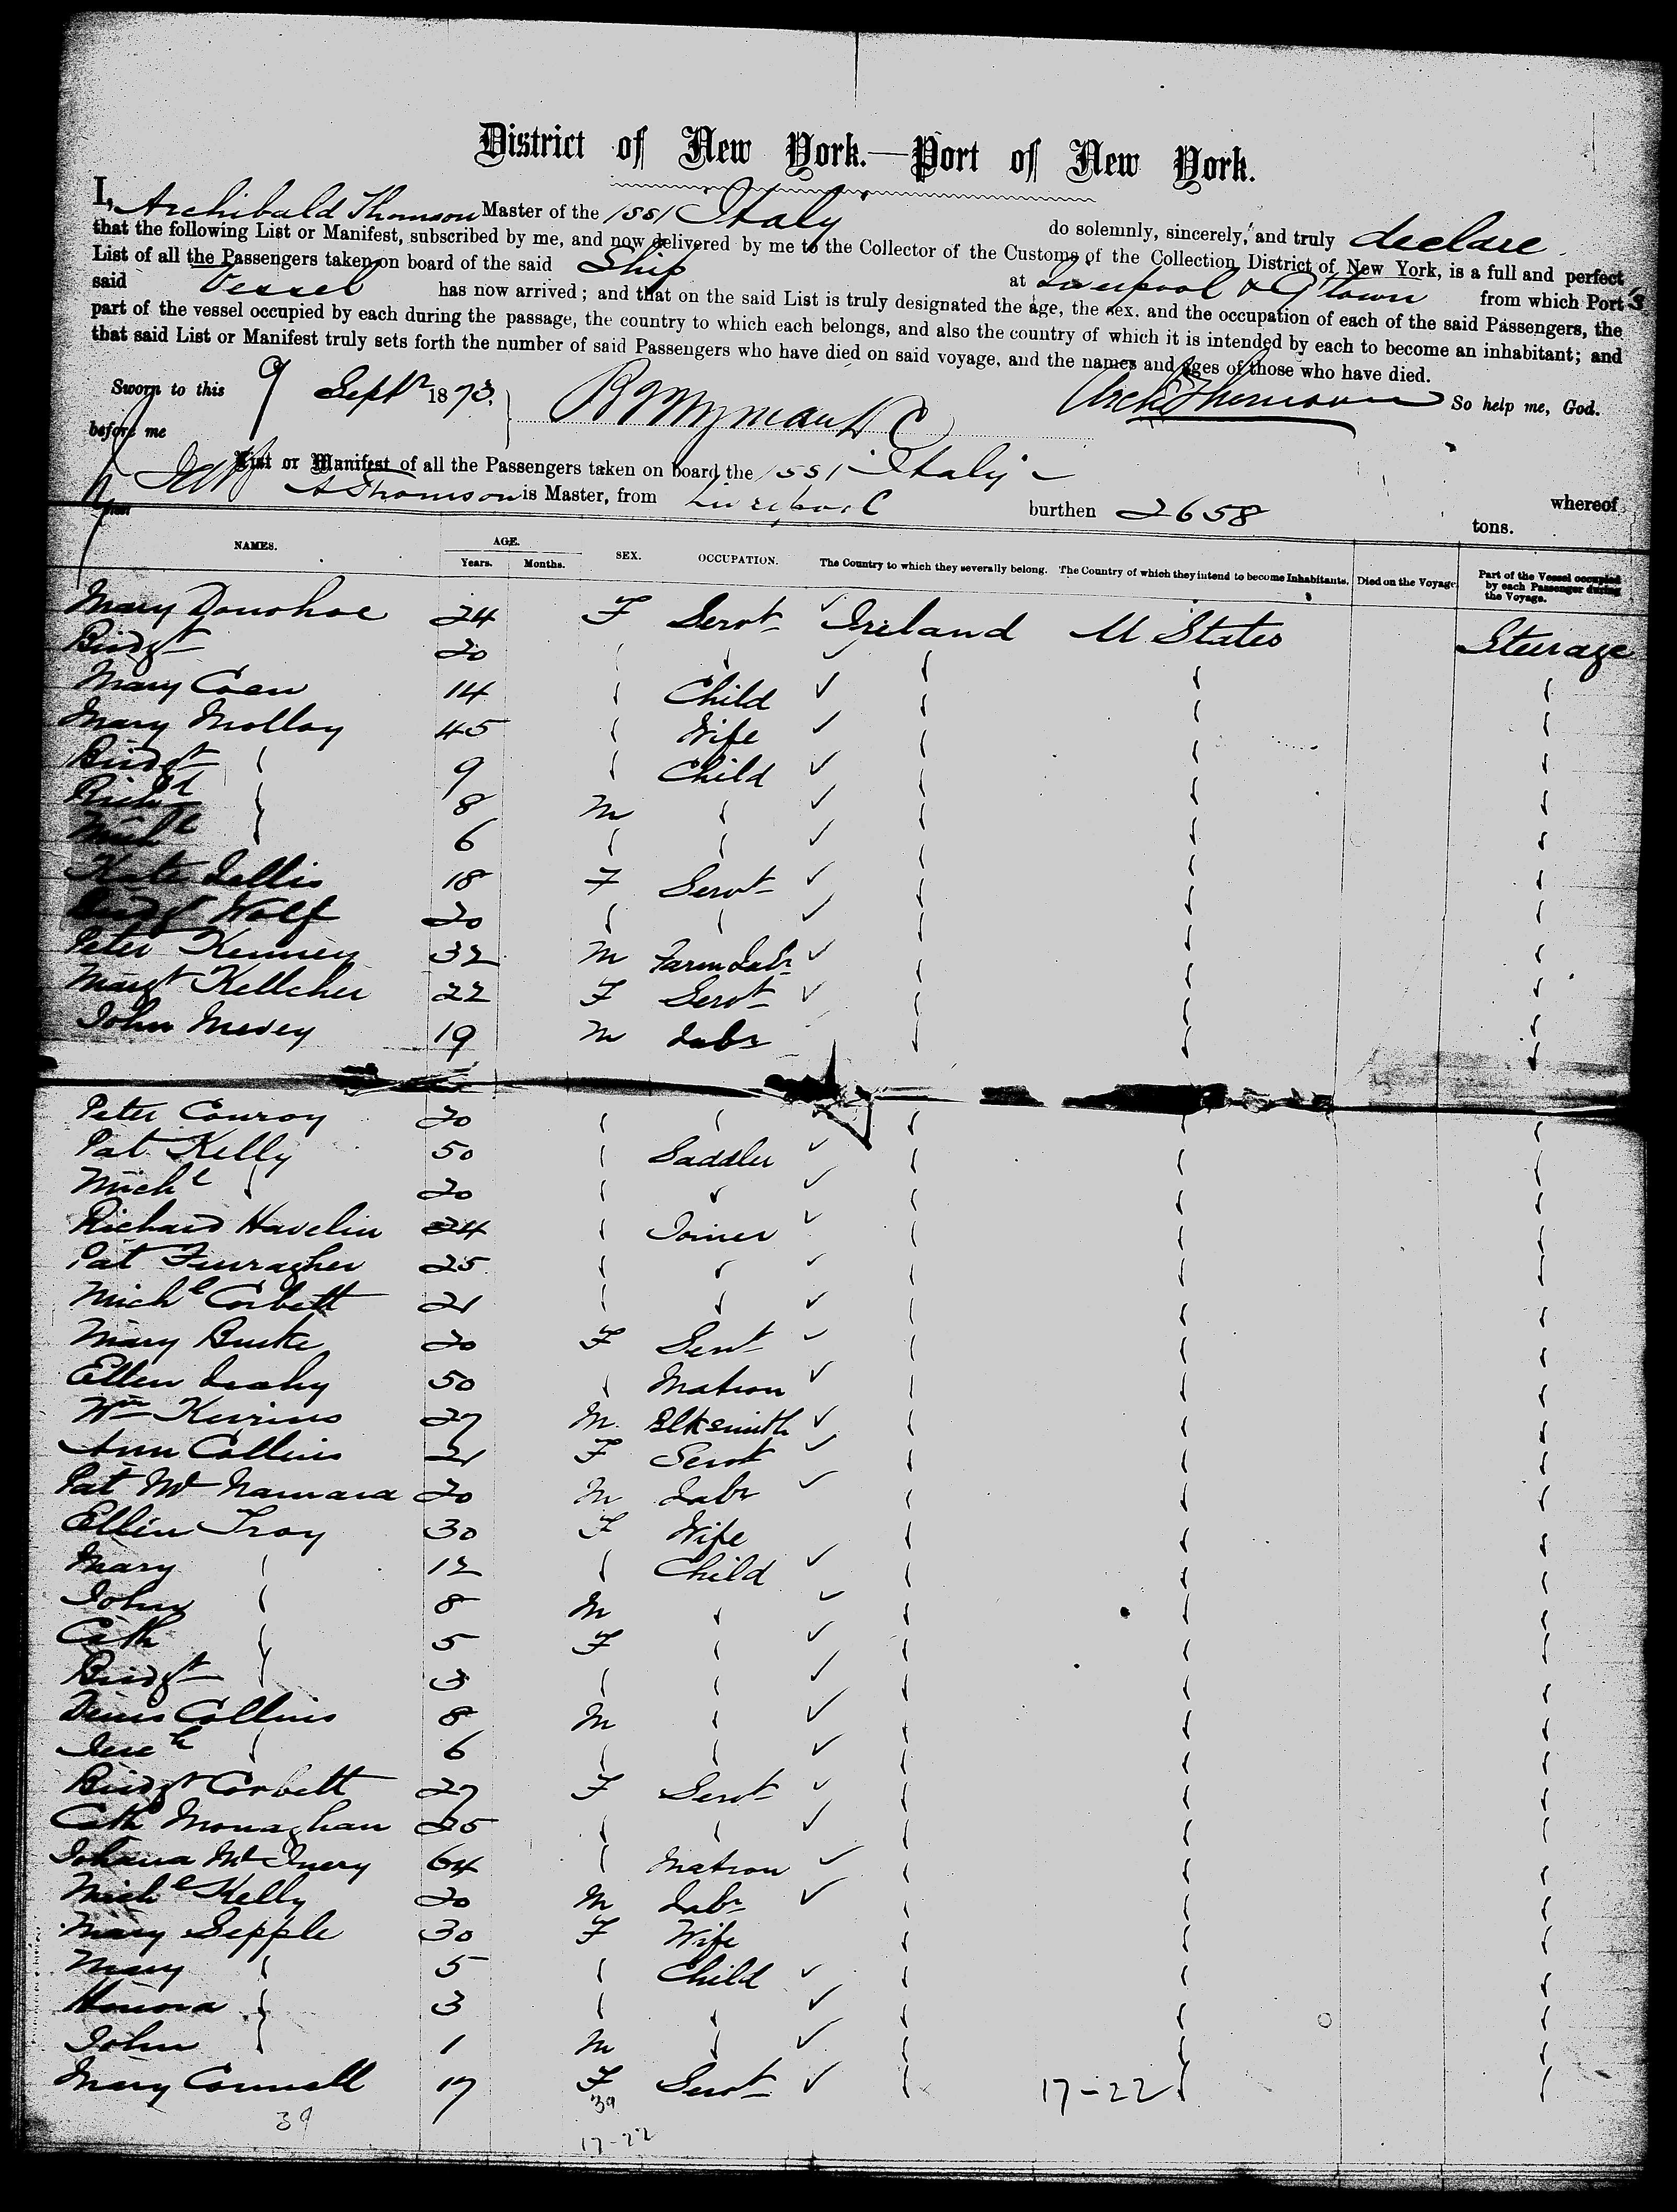 District of New York.—Port of New York.
I, Archibald Thomson Master of the SS Italy do solemnly, sincerely, and truly declare
that the following List or Manifest, subscribed by me, and now delivered by me to the Collector of the Customs of the Collection District of New York, is a full and perfect
List of all the Passengers taken on board of the said Ship at Liverpool & Q'town from which Port s
said Vessel has now arrived; and that on the said List is truly designated the age, the sex. and the occupation of each of the said Passengers, the
part of the vessel occupied by each during the passage, the country to which each belongs, and also the country of which it is intended by each to become an inhabitant; and
that said List or Manifest truly sets forth the number of said Passengers who have died on said voyage, and the names and ages of those who have died.
Sworn to this 9 Septr 1873. Arch Thomson So help me, God.
before me
List or Manifest of all the Passengers taken on board the SS "Italy" whereof
A Thomson is Master, from Liverpool burthen 2658 tons.
NAMES. AGE. Years. Months. SEX. OCCUPATION. The Country to which they severally belong. The Country of which they intend to become Inhabitants. Died on the Voyage Part of the Vessel occupied by each Passenger during the Voyage.
Mary Donohoe 24 F Servt ✓ Ireland U States Steerage
Bridgt 20 ✓
Mary Coen 14 Child ✓
Mary Molloy 45 Wife ✓
Bridgt 9 Child ✓
Richd 8 M ✓
Michl 6 ✓
Kate Lellis 18 F Servt ✓
Bridgt Wolf 20 ✓
Peter Kenney 32 M Farm Labr ✓
Margt Kellcher 22 F Servt ✓
John Mevey 19 M Labr
Peter Conroy 20
Pat Kelly 50 Saddler ✓
Michl 20 ✓
Richard Havelin 24 Joiner ✓
Pat Furragher 25 ✓
Michl Corbett 21 ✓
Mary Burke 20 F Servt ✓
Ellen Leahy 50 Matron ✓
Wm Kerrins 27 M. Blksmith ✓
Ann Collins 21 F Servt ✓
Pat Mc Namara 20 M Labr ✓
Ellen Troy 30 F Wife
Mary 12 Child ✓
John 8 M ✓
Cath 5 F ✓
Bridgt 3 ✓
Denis Collins 8 M ✓
Jereh 6 ✓
Bridgt Corbett 27 F Servt ✓
Cath Monaghan 25 ✓
Johana Mc Inery 64 Matron ✓
Michl Kelly 20 M Labr ✓
Mary Sepple 30 F Wife
Mary 5 Child ✓
Honora 3 ✓
John 1 M ✓
Mary Connell 17 F Servt ✓ 17-22
39 39
17-22